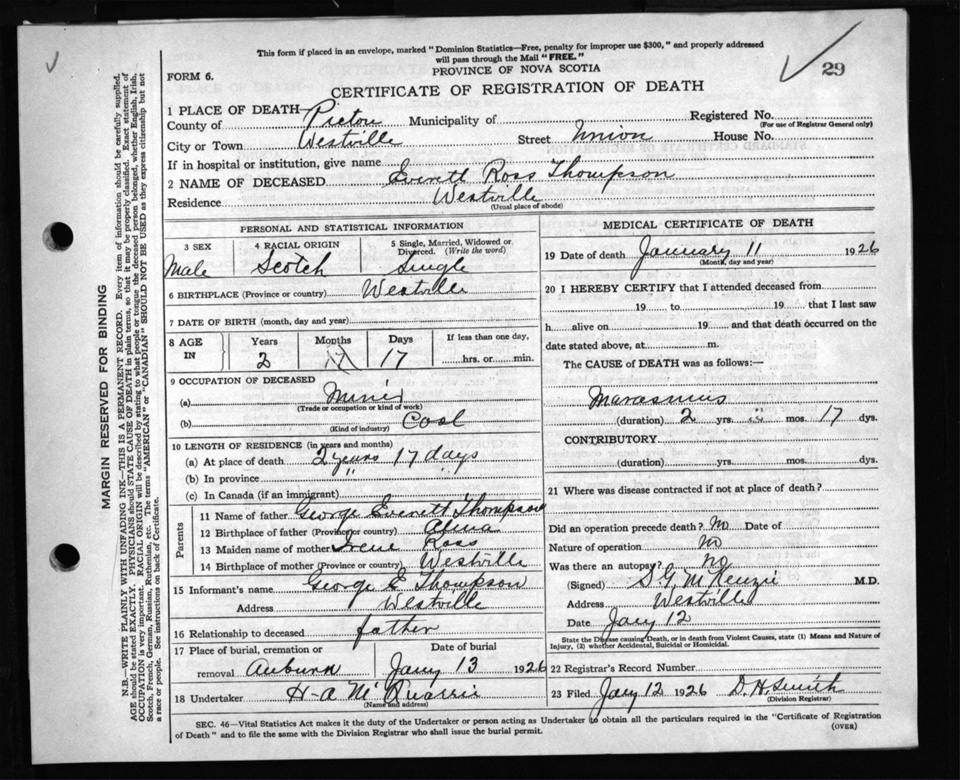 This form if placed in an envelope, marked "Dominion Statistics—Free, penalty for improper use $300," and properly addressed
will pass through the Mail "FREE."
PROVINCE OF NOVA SCOTIA
29
FORM 6.
CERTIFICATE OF REGISTRATION OF DEATH
1 PLACE OF DEATH— Registered No.
County of Pictou Municipality of (For use of Registrar General only)
City or Town Westville Street Union House No.
If in hospital or institution, give name
2 NAME OF DECEASED Everett Ross Thompson
Residence Westville
(Usual place of abode)
PERSONAL AND STATISTICAL INFORMATION
3 SEX 4 RACIAL ORIGIN 5 Single, Married, Widowed or Divorced. (Write the word)
Male Scotch Single
6 BIRTHPLACE (Province or country) Westville
7 DATE OF BIRTH (month, day and year)
8 AGE IN Years Months Days If less than one day,
2 17 17 hrs. or min.
9 OCCUPATION OF DECEASED
(a) Miner
(Trade or occupation or kind of work)
(b) Coal
(Kind of industry)
10 LENGTH OF RESIDENCE (in years and months)
(a) At place of death 2 years 17 days
(b) In province " "
(c) In Canada (if an immigrant)
Parents
11 Name of father George Everett Thompson
12 Birthplace of father (Province or country) Alma
13 Maiden name of mother Irene Ross
14 Birthplace of mother (Province or country) Westville
15 Informant's name George E Thompson
Address Westville
16 Relationship to deceased father
17 Place of burial, cremation or removal Date of burial
Auburn Jany 13 1926
18 Undertaker H-a McQuarrie
(Name and address)
MEDICAL CERTIFICATE OF DEATH
19 Date of death January 11 1926
(Month, day and year)
20 I HEREBY CERTIFY that I attended deceased from
19 to 19 that I last saw
h alive on 19 and that death occurred on the
date stated above, at m.
The CAUSE of DEATH was as follows:—
Marasmus
(duration) 2 yrs. mos. 17 dys.
CONTRIBUTORY
(duration) yrs. mos. dys.
21 Where was disease contracted if not at place of death?
Did an operation precede death? No Date of
Nature of operation No
Was there an autopsy? No
(Signed) S. G. McKenzie M.D.
Address Westville
Date Jany 12
State the Disease causing Death, or in death from Violent Causes, state (1) Means and Nature of
Injury, (2) whether Accidental, Suicidal or Homicidal.
22 Registrar's Record Number
23 Filed Jany 12 1926 D. H. Smith
(Division Registrar)
SEC. 46—Vital Statistics Act makes it the duty of the Undertaker or person acting as Undertaker to obtain all the particulars required in the "Certificate of Registration
of Death" and to file the same with the Division Registrar who shall issue the burial permit.
(OVER)
MARGIN RESERVED FOR BINDING
N.B.—WRITE PLAINLY WITH UNFADING INK—THIS IS A PERMANENT RECORD. Every item of information should be carefully supplied.
AGE should be stated EXACTLY. PHYSICIANS should STATE CAUSE OF DEATH in plain terms, so that it may be properly classified. Exact statement of
OCCUPATION is very important. RACIAL ORIGIN will be described by stating to what people or tongue the deceased person belonged, whether English, Irish,
Scotch, French, German, Russian, Ruthenian, etc. The terms "AMERICAN" or "CANADIAN" SHOULD NOT BE USED as they express citizenship but not
a race or people. See instructions on back of Certificate.